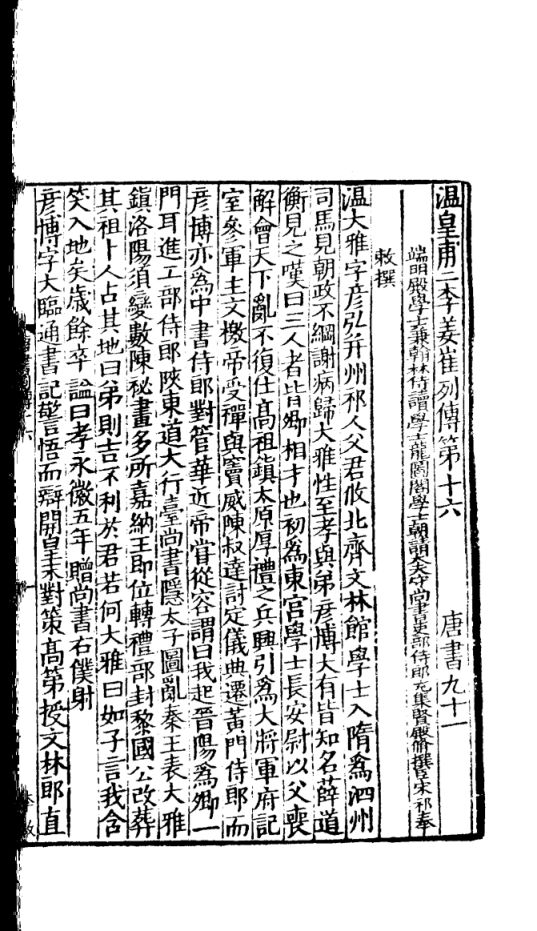 温皇甫二李姜崔列傳第十六　唐書九十一
端明殿學士兼翰林侍讀學士龍圖閣學士朝請大夫守尚書吏部侍郎充集賢殿脩撰臣宋祁奉
敕撰
温大雅字彦弘并州祁人父君攸北齊文林館學士入隋爲泗州
司馬見朝政不綱謝病歸大雅性至孝與弟彦博大有皆知名薛道
衡見之嘆曰三人者皆卿相才也初爲東宫學士長安尉以父喪
解會天下亂不復仕髙祖鎮太原厚禮之兵興引爲大將軍府記
室參軍主文檄帝受禪與竇威陳叔達討定儀典遷黄門侍郎而
彦博亦爲中書侍郎對管華近帝嘗從容謂曰我起晉陽爲卿一
門耳進工部侍郎陜東道大行臺尚書隱太子圖亂秦王表大雅
鎮洛陽須變數陳祕畫多所嘉納王即位轉禮部封黎國公改葬
其祖卜人占其地曰弟則吉不利於君若何大雅曰如子言我含
笑入地矣歳餘卒謚曰孝永徽五年贈尚書右僕射
彦博字大臨通書記警悟而辯開皇末對策髙第授文林郎直